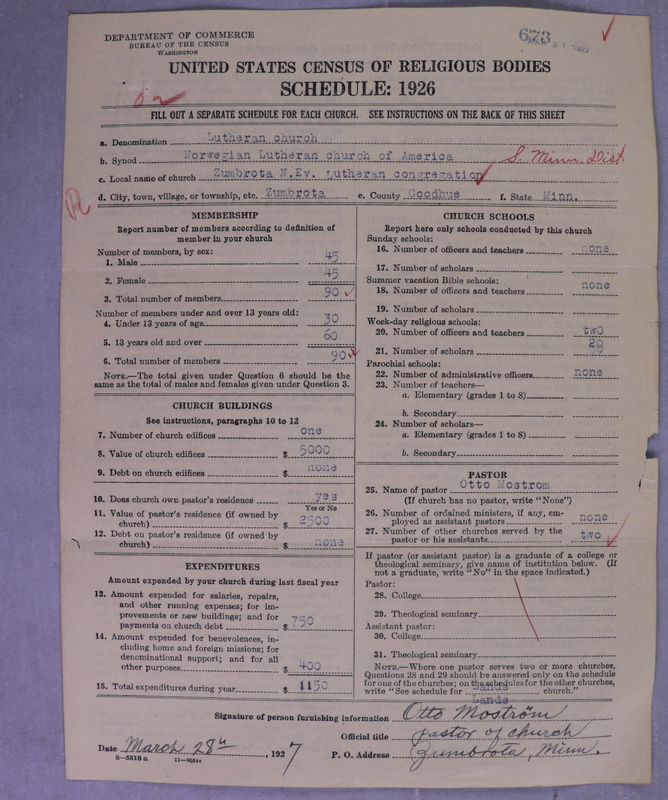 DEPARTMENT OF COMMERCE
BUREAU OF THE CENSUS
WASHINGTON
673
UNITED STATES CENSUS OF RELIGIOUS BODIES
SCHEDULE: 1926
FILL OUT A SEPARATE SCHEDULE FOR EACH CHURCH. SEE INSTRUCTIONS ON THE BACK OF THIS SHEET
a. Denomination Lutheran church
b. Synod Norwegian Lutheran church of America S. Minn. Dist
c. Local name of church Zumbrota N.Ev. Lutheran congregation
d. City, town, village, or township, etc. Zumbrota e. County Goodhue f. State Minn.
MEMBERSHIP
Report number of members according to definition of
member in your church
Number of members, by sex:
1. Male 45
2. Female 45
3. Total number of members 90
Number of members under and over 13 years old:
4. Under 13 years of age 30
5. 13 years old and over 60
6. Total number of members 90
NOTE.—The total given under Question 6 should be the
same as the total of males and females given under Question 3.
CHURCH BUILDINGS
See instructions, paragraphs 10 to 12
7. Number of church edifices one
8. Value of church edifices $ 5000
9. Debt on church edifices $ none
10. Does church own pastor's residence yes
Yes or No
11. Value of pastor's residence (if owned by
church) $ 2500
12. Debt on pastor's residence (if owned by
church) $ none
EXPENDITURES
Amount expended by your church during last fiscal year
13. Amount expended for salaries, repairs,
and other running expenses; for im-
provements or new buildings; and for
payments on church debt $ 750
14. Amount expended for benevolences, in-
cluding home and foreign missions; for
denominational support; and for all
other purposes $ 400
15. Total expenditures during year $ 1150
CHURCH SCHOOLS
Report here only schools conducted by this church
Sunday schools:
16. Number of officers and teachers none
17. Number of scholars
Summer vacation Bible schools:
18. Number of officers and teachers none
19. Number of scholars
Week-day religious schools:
20. Number of officers and teachers two
21. Number of scholars
Parochial schools:
22. Number of administrative officers none
23. Number of teachers—
a. Elementary (grades 1 to 8)
b. Secondary
24. Number of scholars—
a. Elementary (grades 1 to 8)
b. Secondary
PASTOR
25. Name of pastor Otto Mostrom
(If church has no pastor, write "None")
26. Number of ordained ministers, if any, em-
ployed as assistant pastors none
27. Number of other churches served by the
pastor or his assistants two
If pastor (or assistant pastor) is a graduate of a college or
theological seminary, give name of institution below. (If
not a graduate, write "No" in the space indicated.)
Pastor:
28. College
29. Theological seminary
Assistant pastor:
30. College
31. Theological seminary
NOTE.—Where one pastor serves two or more churches,
Questions 28 and 29 should be answered only on the schedule
for one of the churches; on the schedules for the other churches,
write "See schedule for Lands church."
Lands
Signature of person furnishing information Otto Moström
Official title pastor of church
Date March 28th, 1927 P. O. Address Zumbrota, Minn.
8—5518a